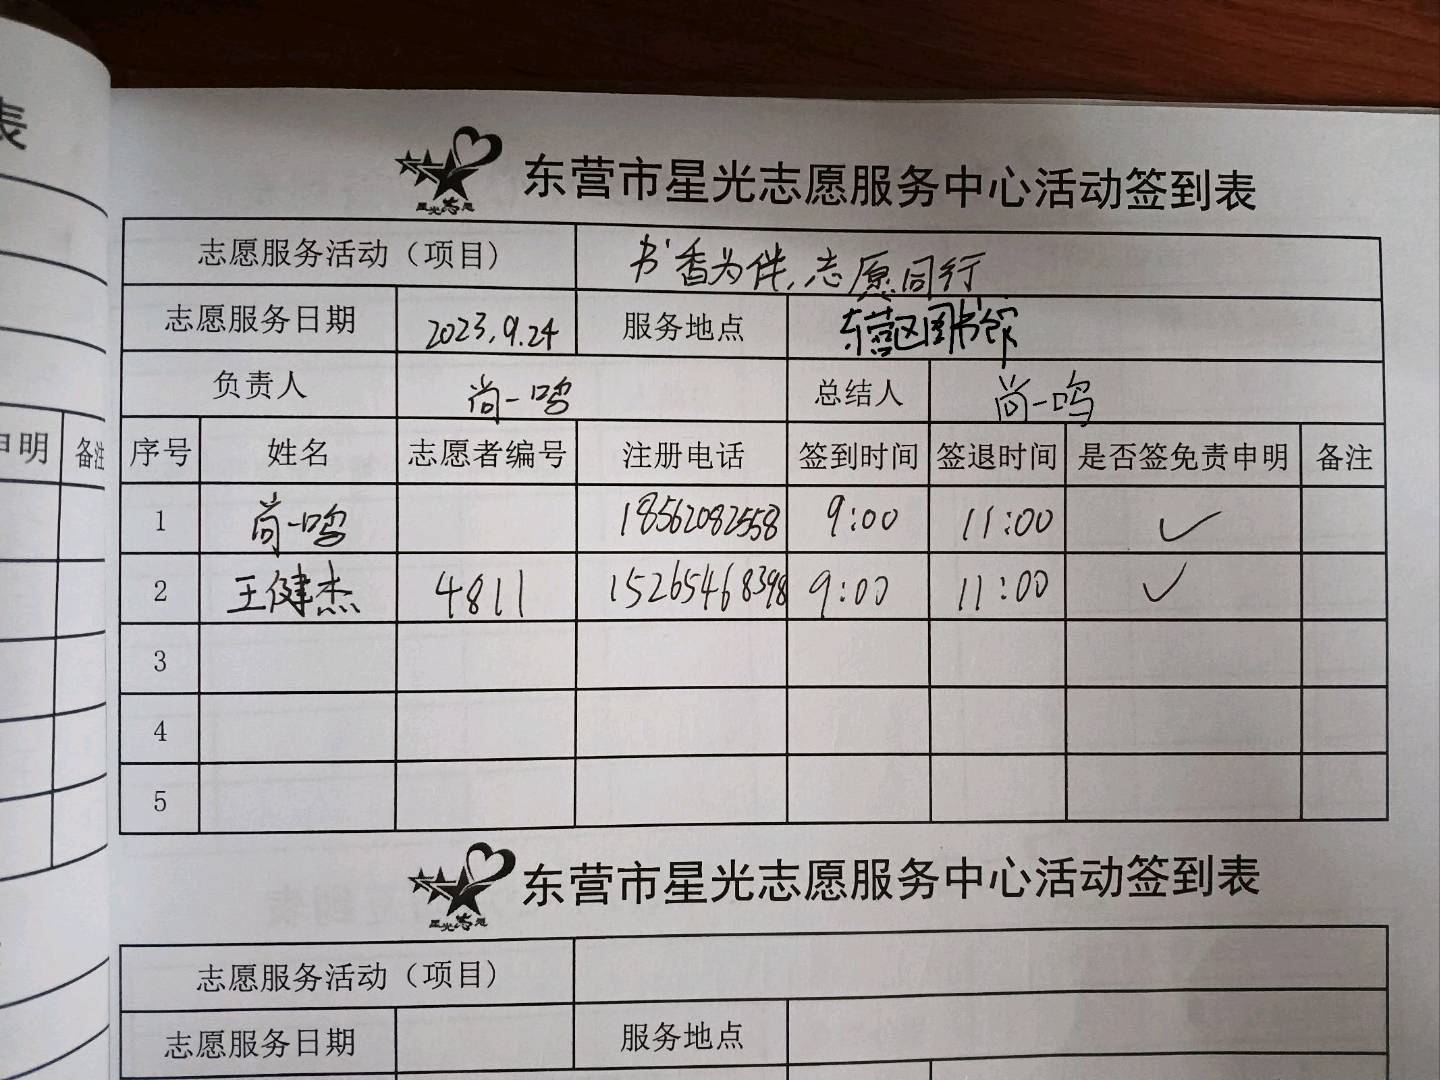 表
申明 备注
星光志愿
东营市星光志愿服务中心活动签到表
志愿服务活动（项目） 书香为伴,志愿同行
志愿服务日期 2023.9.24 服务地点 东营区图书馆
负责人 尚一鸣 总结人 尚一鸣
序号 姓名 志愿者编号 注册电话 签到时间 签退时间 是否签免责申明 备注
1 尚一鸣 18562082558 9:00 11:00 ✓
2 王健杰 4811 15265468398 9:00 11:00 ✓
3
4
5
星光志愿
东营市星光志愿服务中心活动签到表
志愿服务活动（项目）
志愿服务日期 服务地点